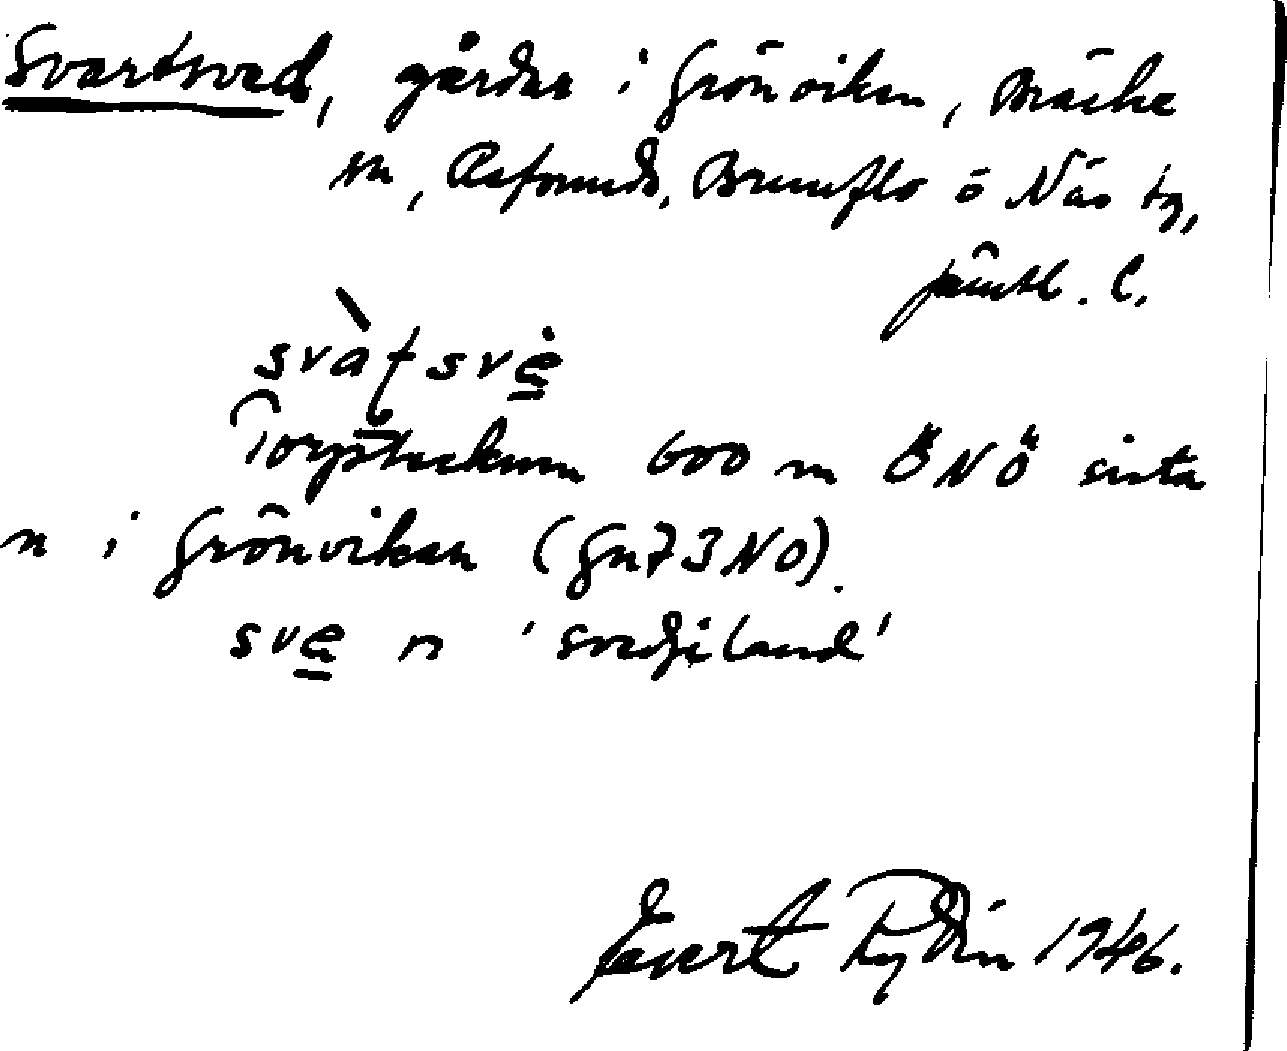 Svartsved, gårdar i Grönviken, Bräcke
sn, Refsunds, Brunflo o Näs tg,
Jämtl. l.
svàṭsvè̱
Torptecknen 600 m ÖNÖ sista
n i Grönvikan (Gn73NO).
sve̱ n 'svedjeland'
Evert Rydin 1946.